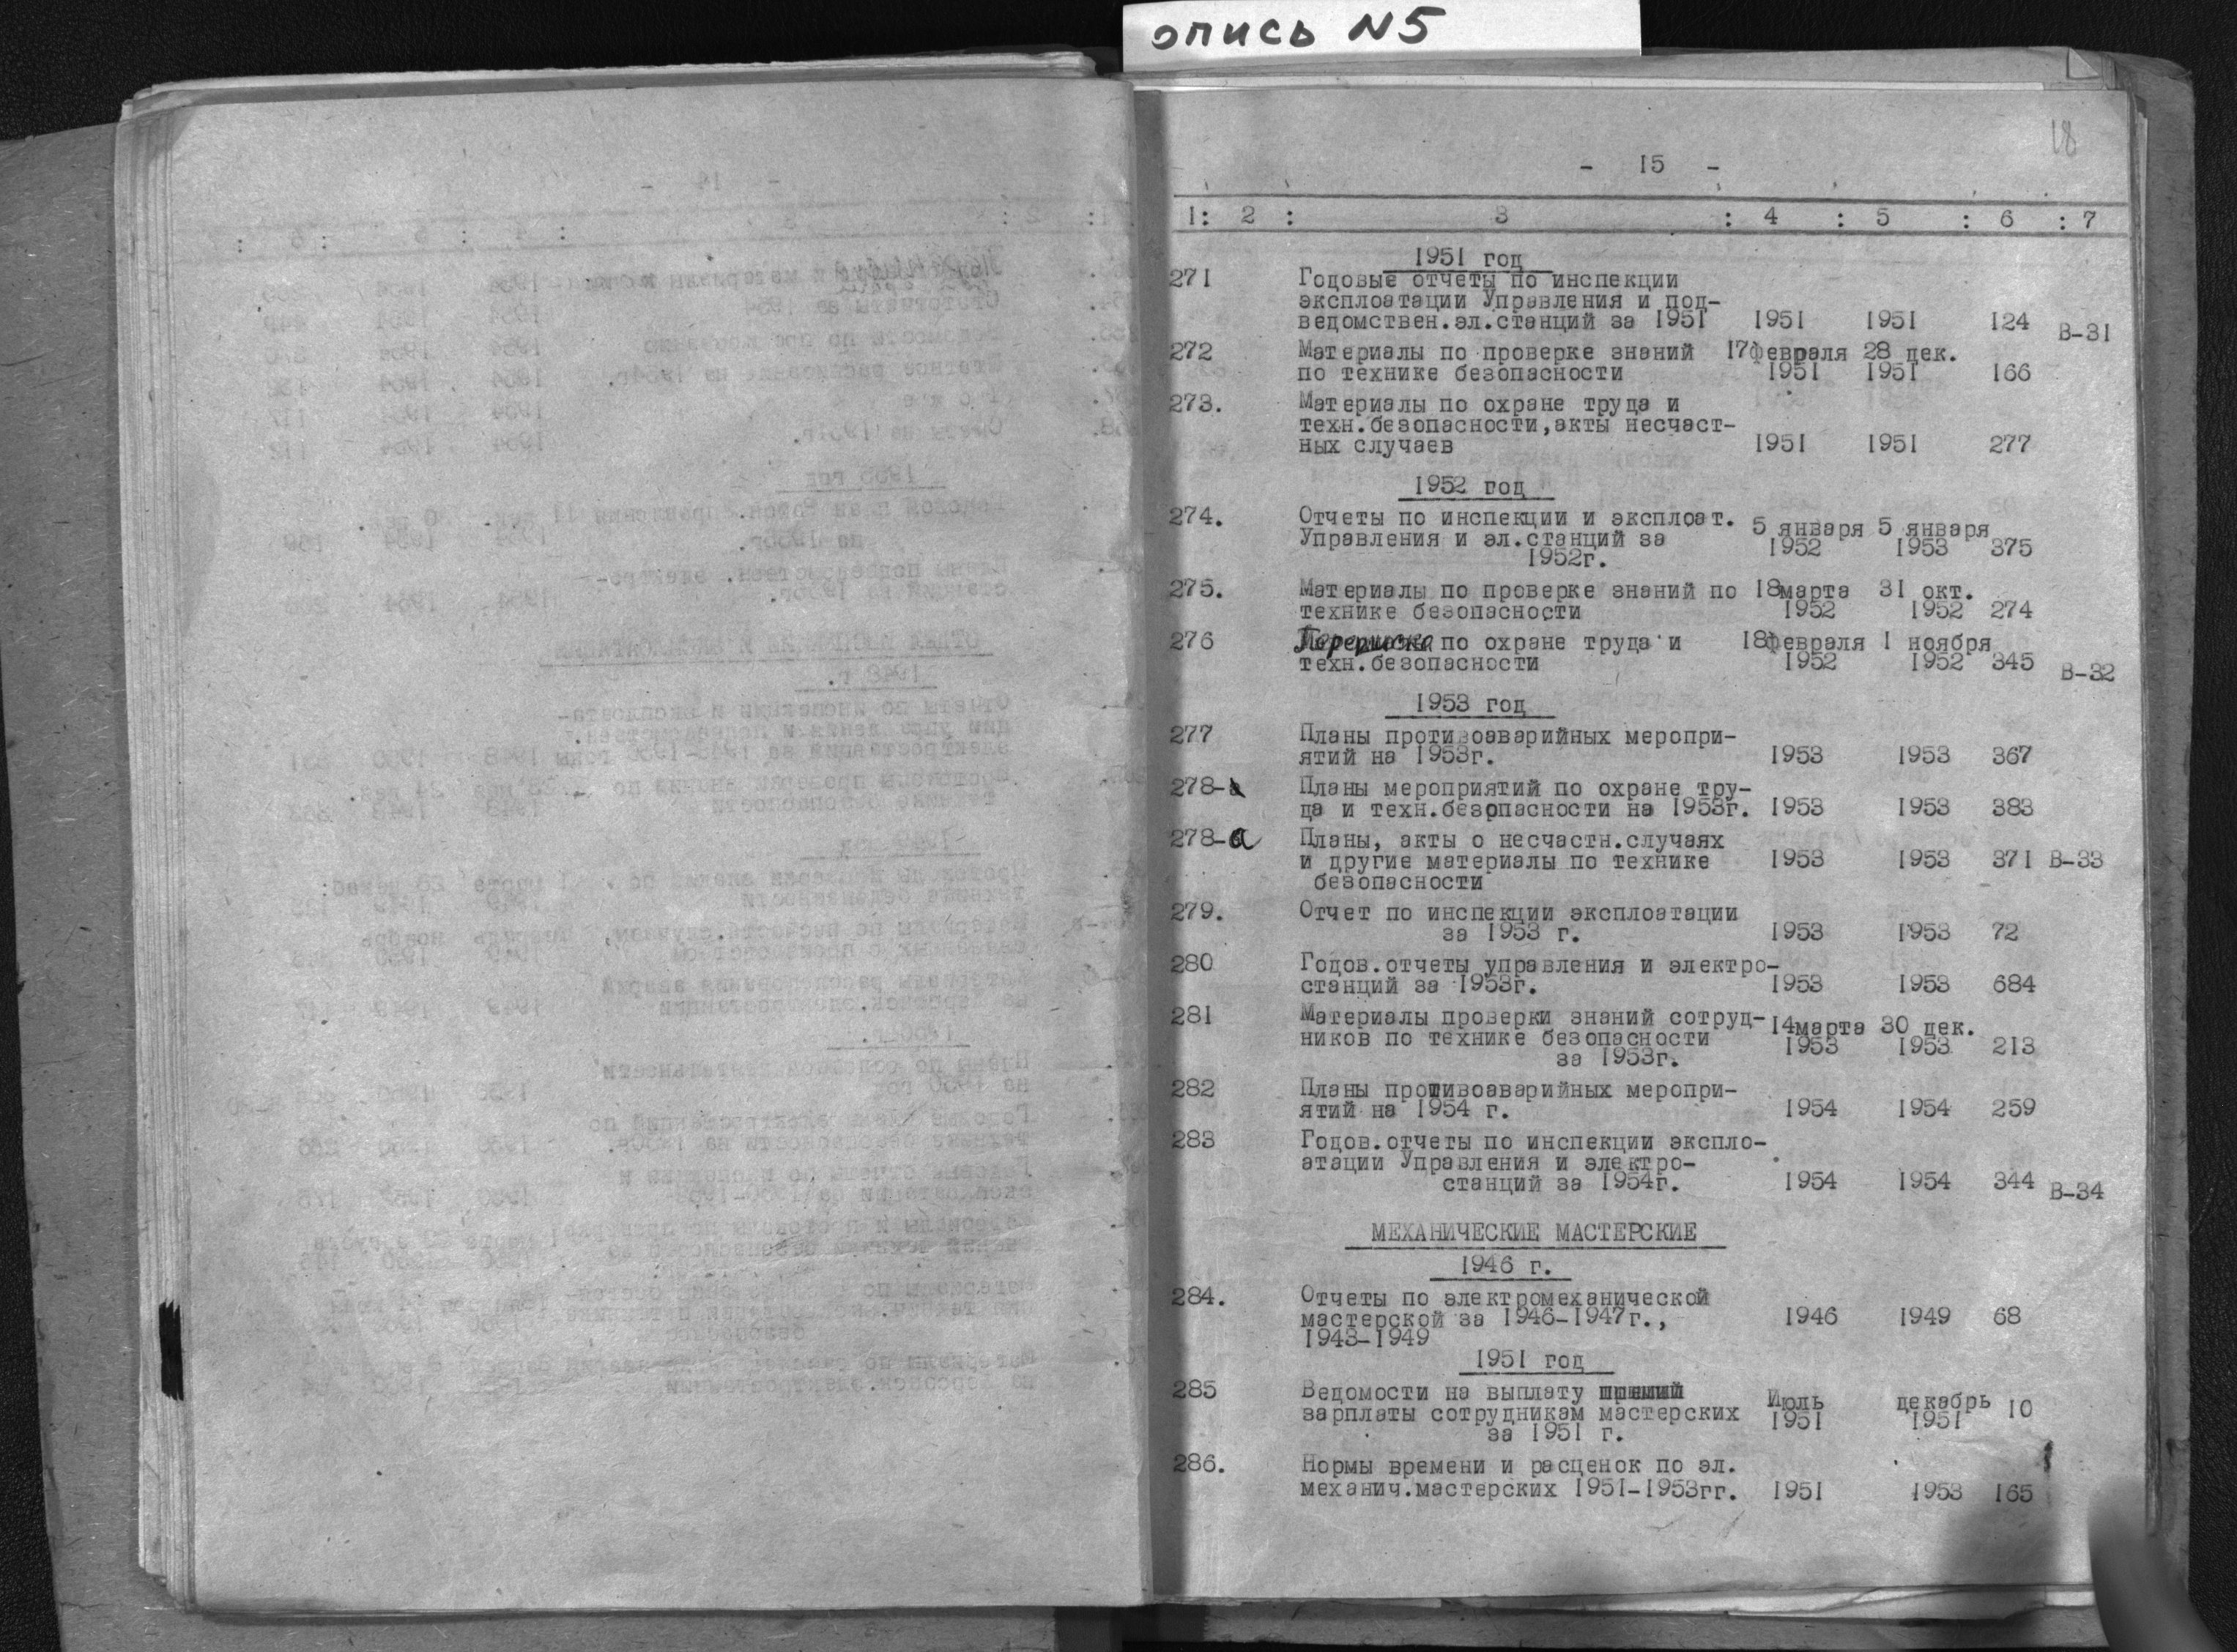 опись N5
18
- 15 -
1: 2 : 3 : 4 : 5 : 6 : 7
1951 год
271 Годовые отчеты по инспекции
эксплоатации Управления и под-
ведомствен.эл.станций за 1951 1951 1951 124 В-31
272 Материалы по проверке знаний 17февраля 28 дек.
по технике безопасности 1951 1951 166
273. Материалы по охране труда и
техн.безопасности,акты несчаст-
ных случаев 1951 1951 277
1952 год
274. Отчеты по инспекции и эксплоат. 5 января 5 января
Управления и эл.станций за 1952 1953 375
1952г.
275. Материалы по проверке знаний по 18марта 31 окт.
технике безопасности 1952 1952 274
276 Переписка по охране труда и 18февраля 1 ноября
техн.безопасности 1952 1952 345 В-32
1953 год
277 Планы противоаварийных меропри-
ятий на 1953г. 1953 1953 367
278- Планы мероприятий по охране тру-
да и техн.безопасности на 1953г. 1953 1953 383
278-а Планы, акты о несчастн.случаях
и другие материалы по технике 1953 1953 371 В-33
безопасности
279. Отчет по инспекции эксплоатации
за 1953 г. 1953 1953 72
280 Годов.отчеты управления и электро-
станций за 1953г. 1953 1953 684
281 Материалы проверки знаний сотруд- 14марта 30 дек.
ников по технике безопасности 1953 1953 213
за 1953г.
282 Планы противоаварийных меропри-
ятий на 1954 г. 1954 1954 259
283 Годов.отчеты по инспекции экспло-
атации Управления и электро-
станций за 1954г. 1954 1954 344 В-34
МЕХАНИЧЕСКИЕ МАСТЕРСКИЕ
1946 г.
284. Отчеты по электромеханической
мастерской за 1946-1947г., 1946 1949 68
1948-1949
1951 год
285 Ведомости на выплату Июль декабрь
зарплаты сотрудникам мастерских 1951 1951 10
за 1951 г.
286. Нормы времени и расценок по эл.
механич.мастерских 1951-1953гг. 1951 1953 165